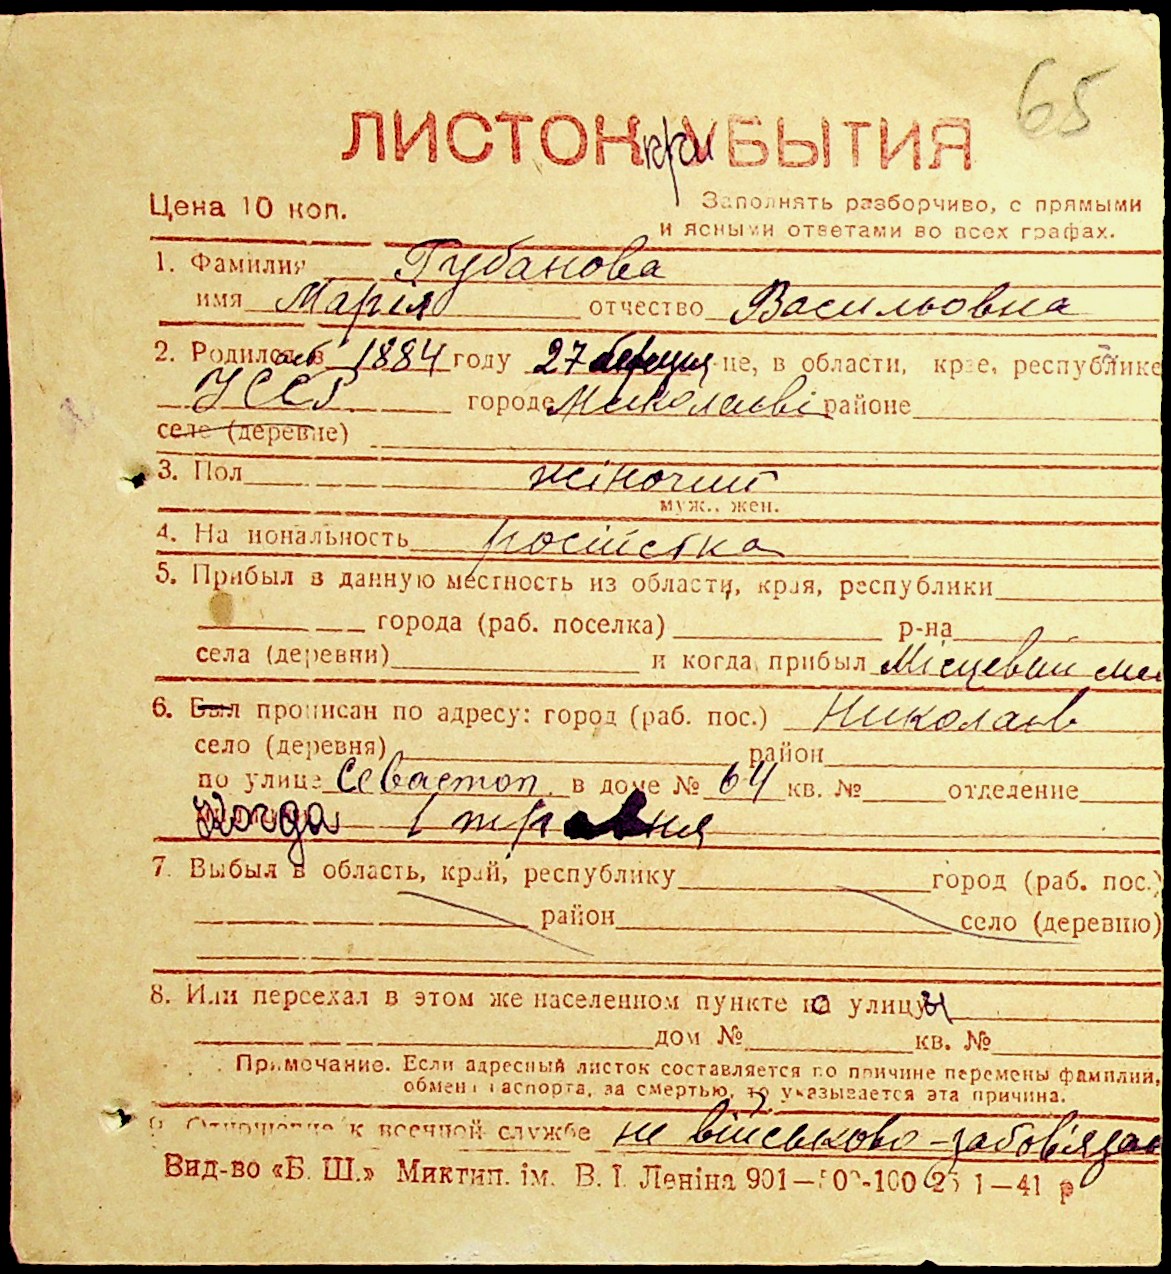 65
ЛИСТОК при УБЫТИЯ
Цена 10 коп.
Заполнять разборчиво, с прямыми
и ясными ответами во всех графах.
1. Фамилия Губанова
имя Марія отчество Васильовна
2. Родился в 1884 году 27 березня не, в области, крае, республике
УССР городе Миколаєві районе
селе (деревне)
3. Пол жіночий
муж., жен.
4. Национальность росіїстка
5. Прибыл в данную местность из области, края, республики
города (раб. поселка) р-на
села (деревни) и когда прибыл Місцевий
6. Был прописан по адресу: город (раб. пос.) Николаев
село (деревня) район
по улице Севастоп. в доме № 64 кв. № отделение
Когда 1 травня
7. Выбыл в область, край, республику город (раб. пос.)
район село (деревню)
8. Или переехал в этом же населенном пункте на улицу
дом № кв. №
Примечание. Если адресный листок составляется по причине перемены фамилии,
обмена паспорта, за смертью, то указывается эта причина.
9. Отношение к военной службе не військово-забов'язан
Вид-во «Б. Ш.» Миктип. ім. В. І. Леніна 901— 1—41 р